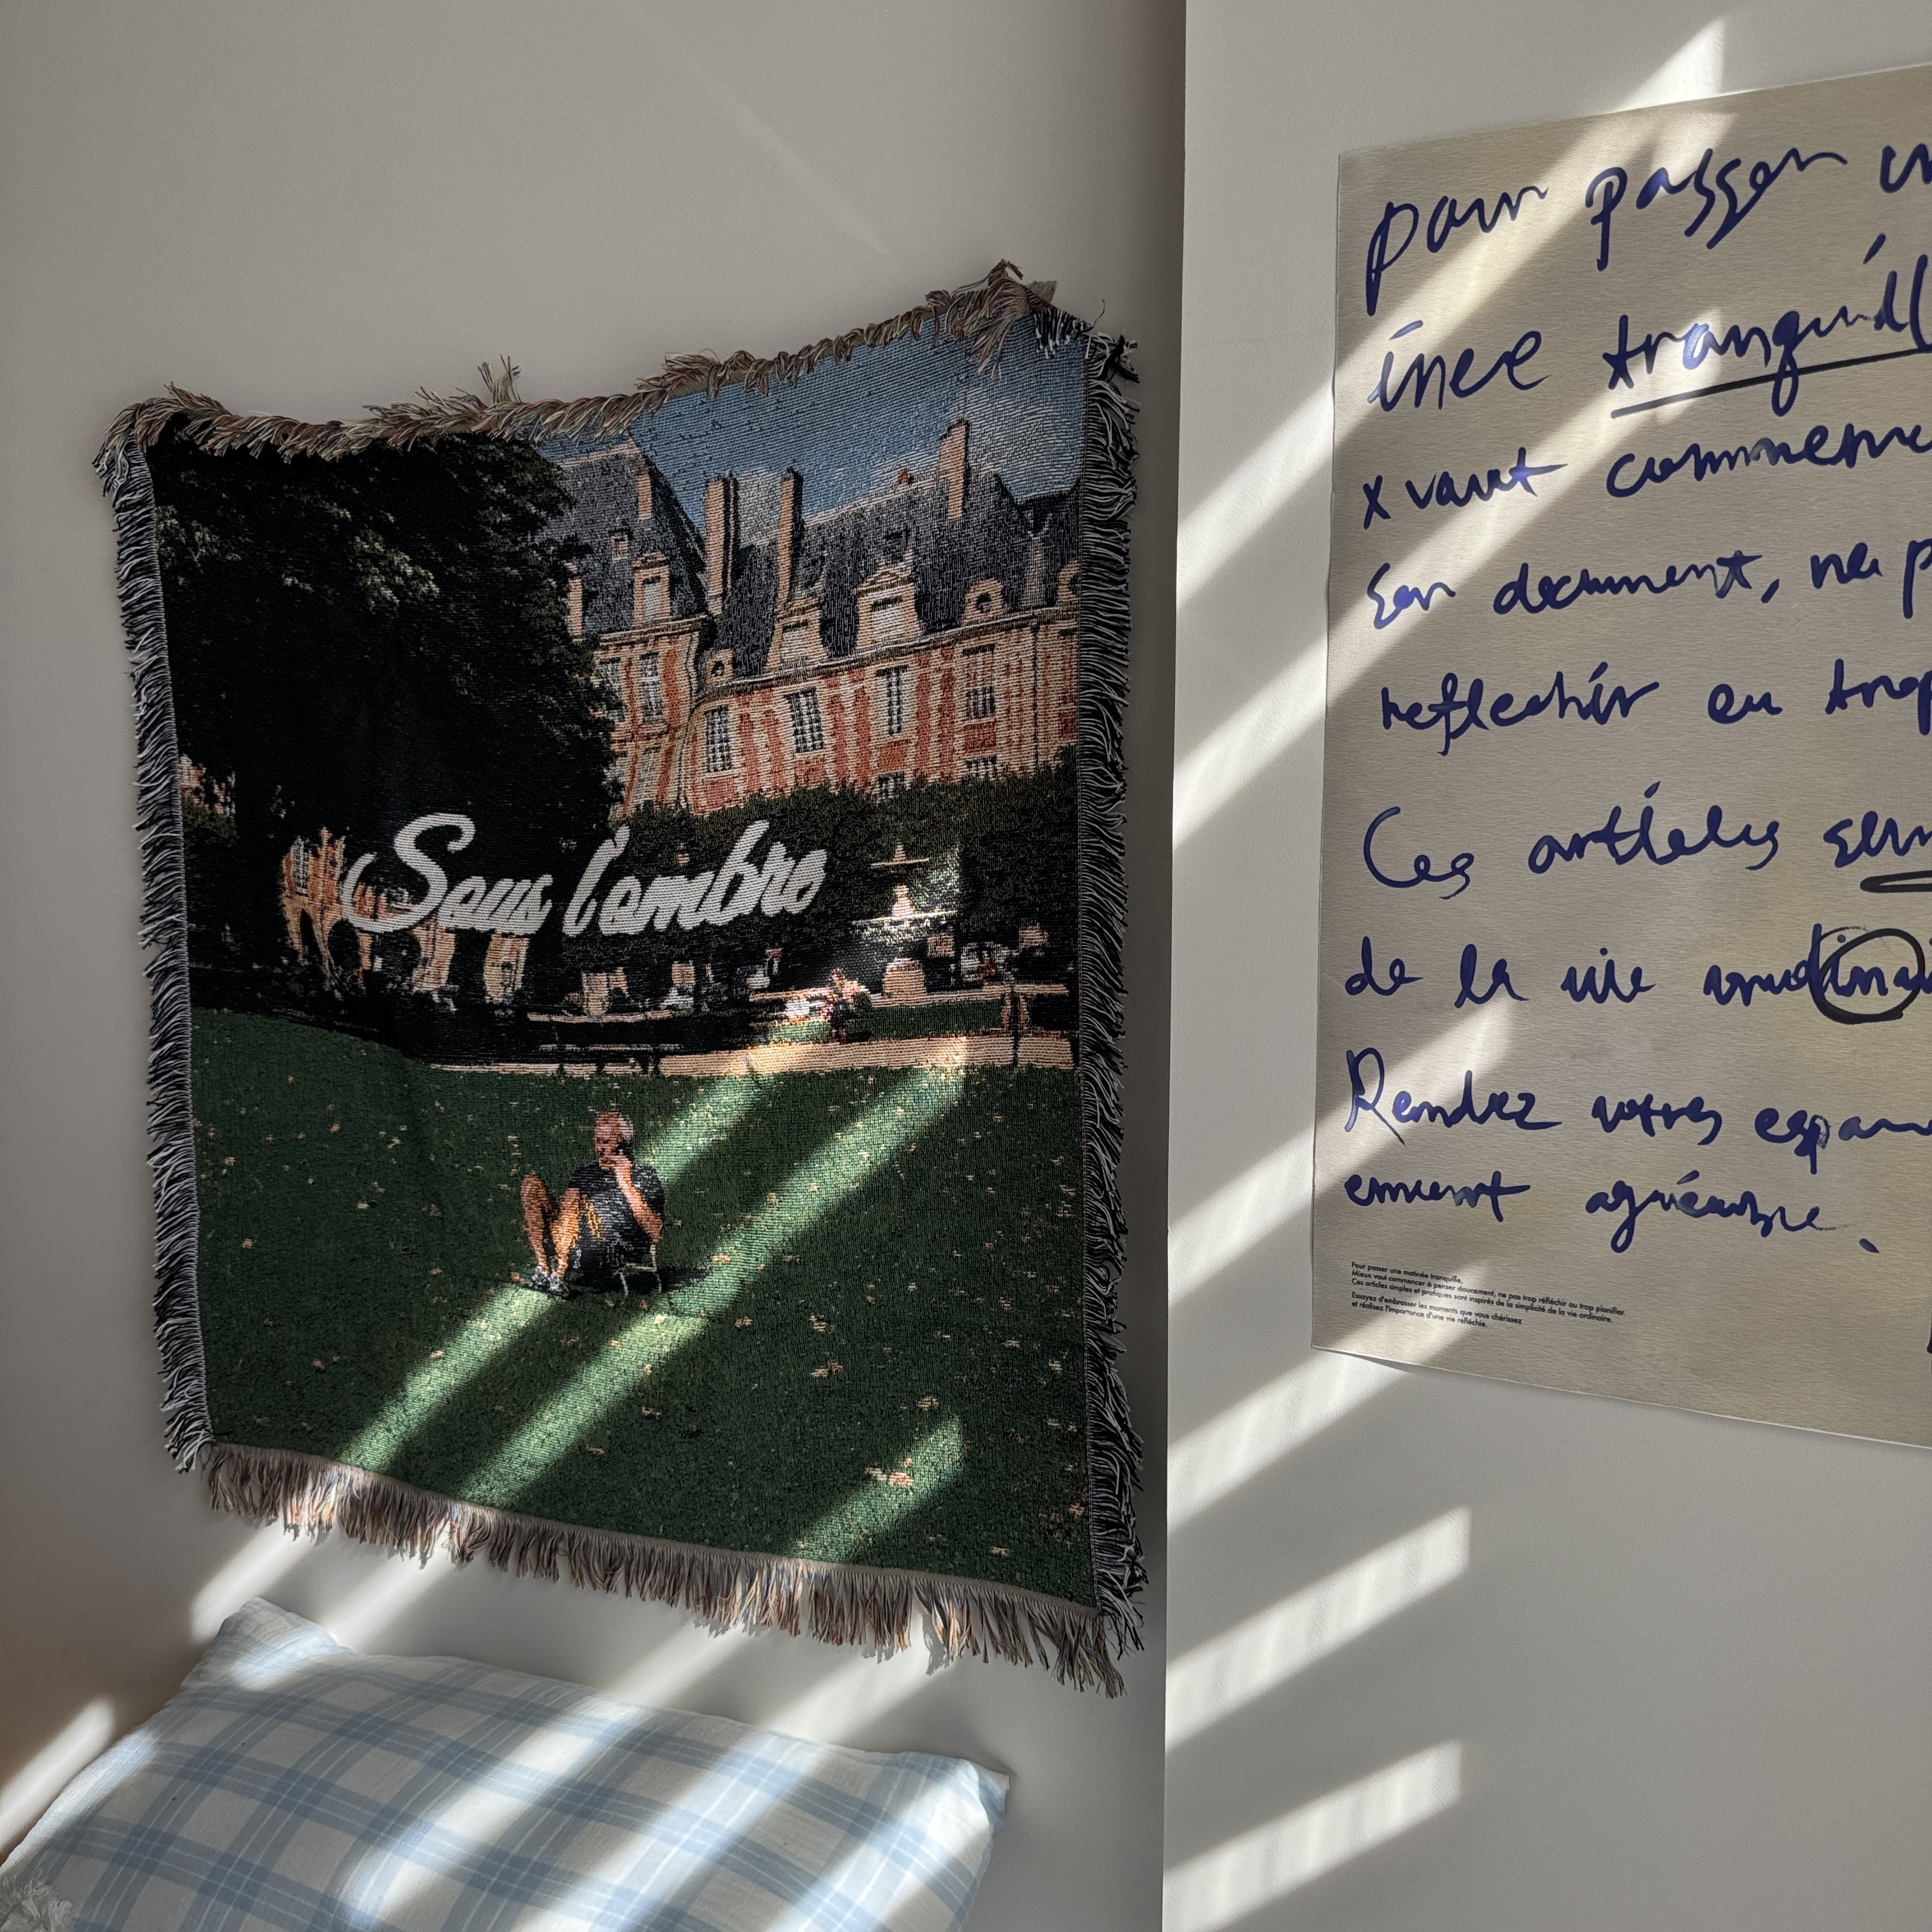 Sous l'ombre
pour passer un
inée tranquill
x vaut commenc
ser doucement, ne p
reflechir ou trop
Ces articles sim
de la vie ordina
Rendez votres espa
ement agréable.
Pour passer une matinée tranquille,
Mieux vaut commencer à penser doucement, ne pas trop réfléchir ou trop planifier.
Ces articles simples et pratiques sont inspirés de la simplicité de la vie ordinaire.
Essayez d'embrasser les moments que vous chérissez
et réalisez l'importance d'une vie réfléchie.